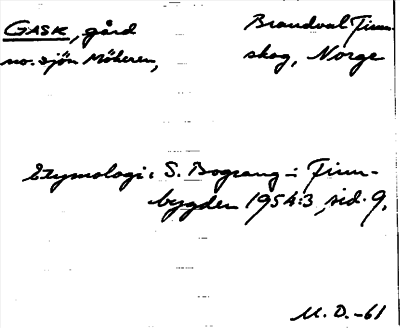 GASK, gård
no. sjön Möheren,
Brandval Finn-
skog, Norge
Etymologi: S. Bograng i Finn-
bygden 1954:3, sid. 9.
M. D. -61